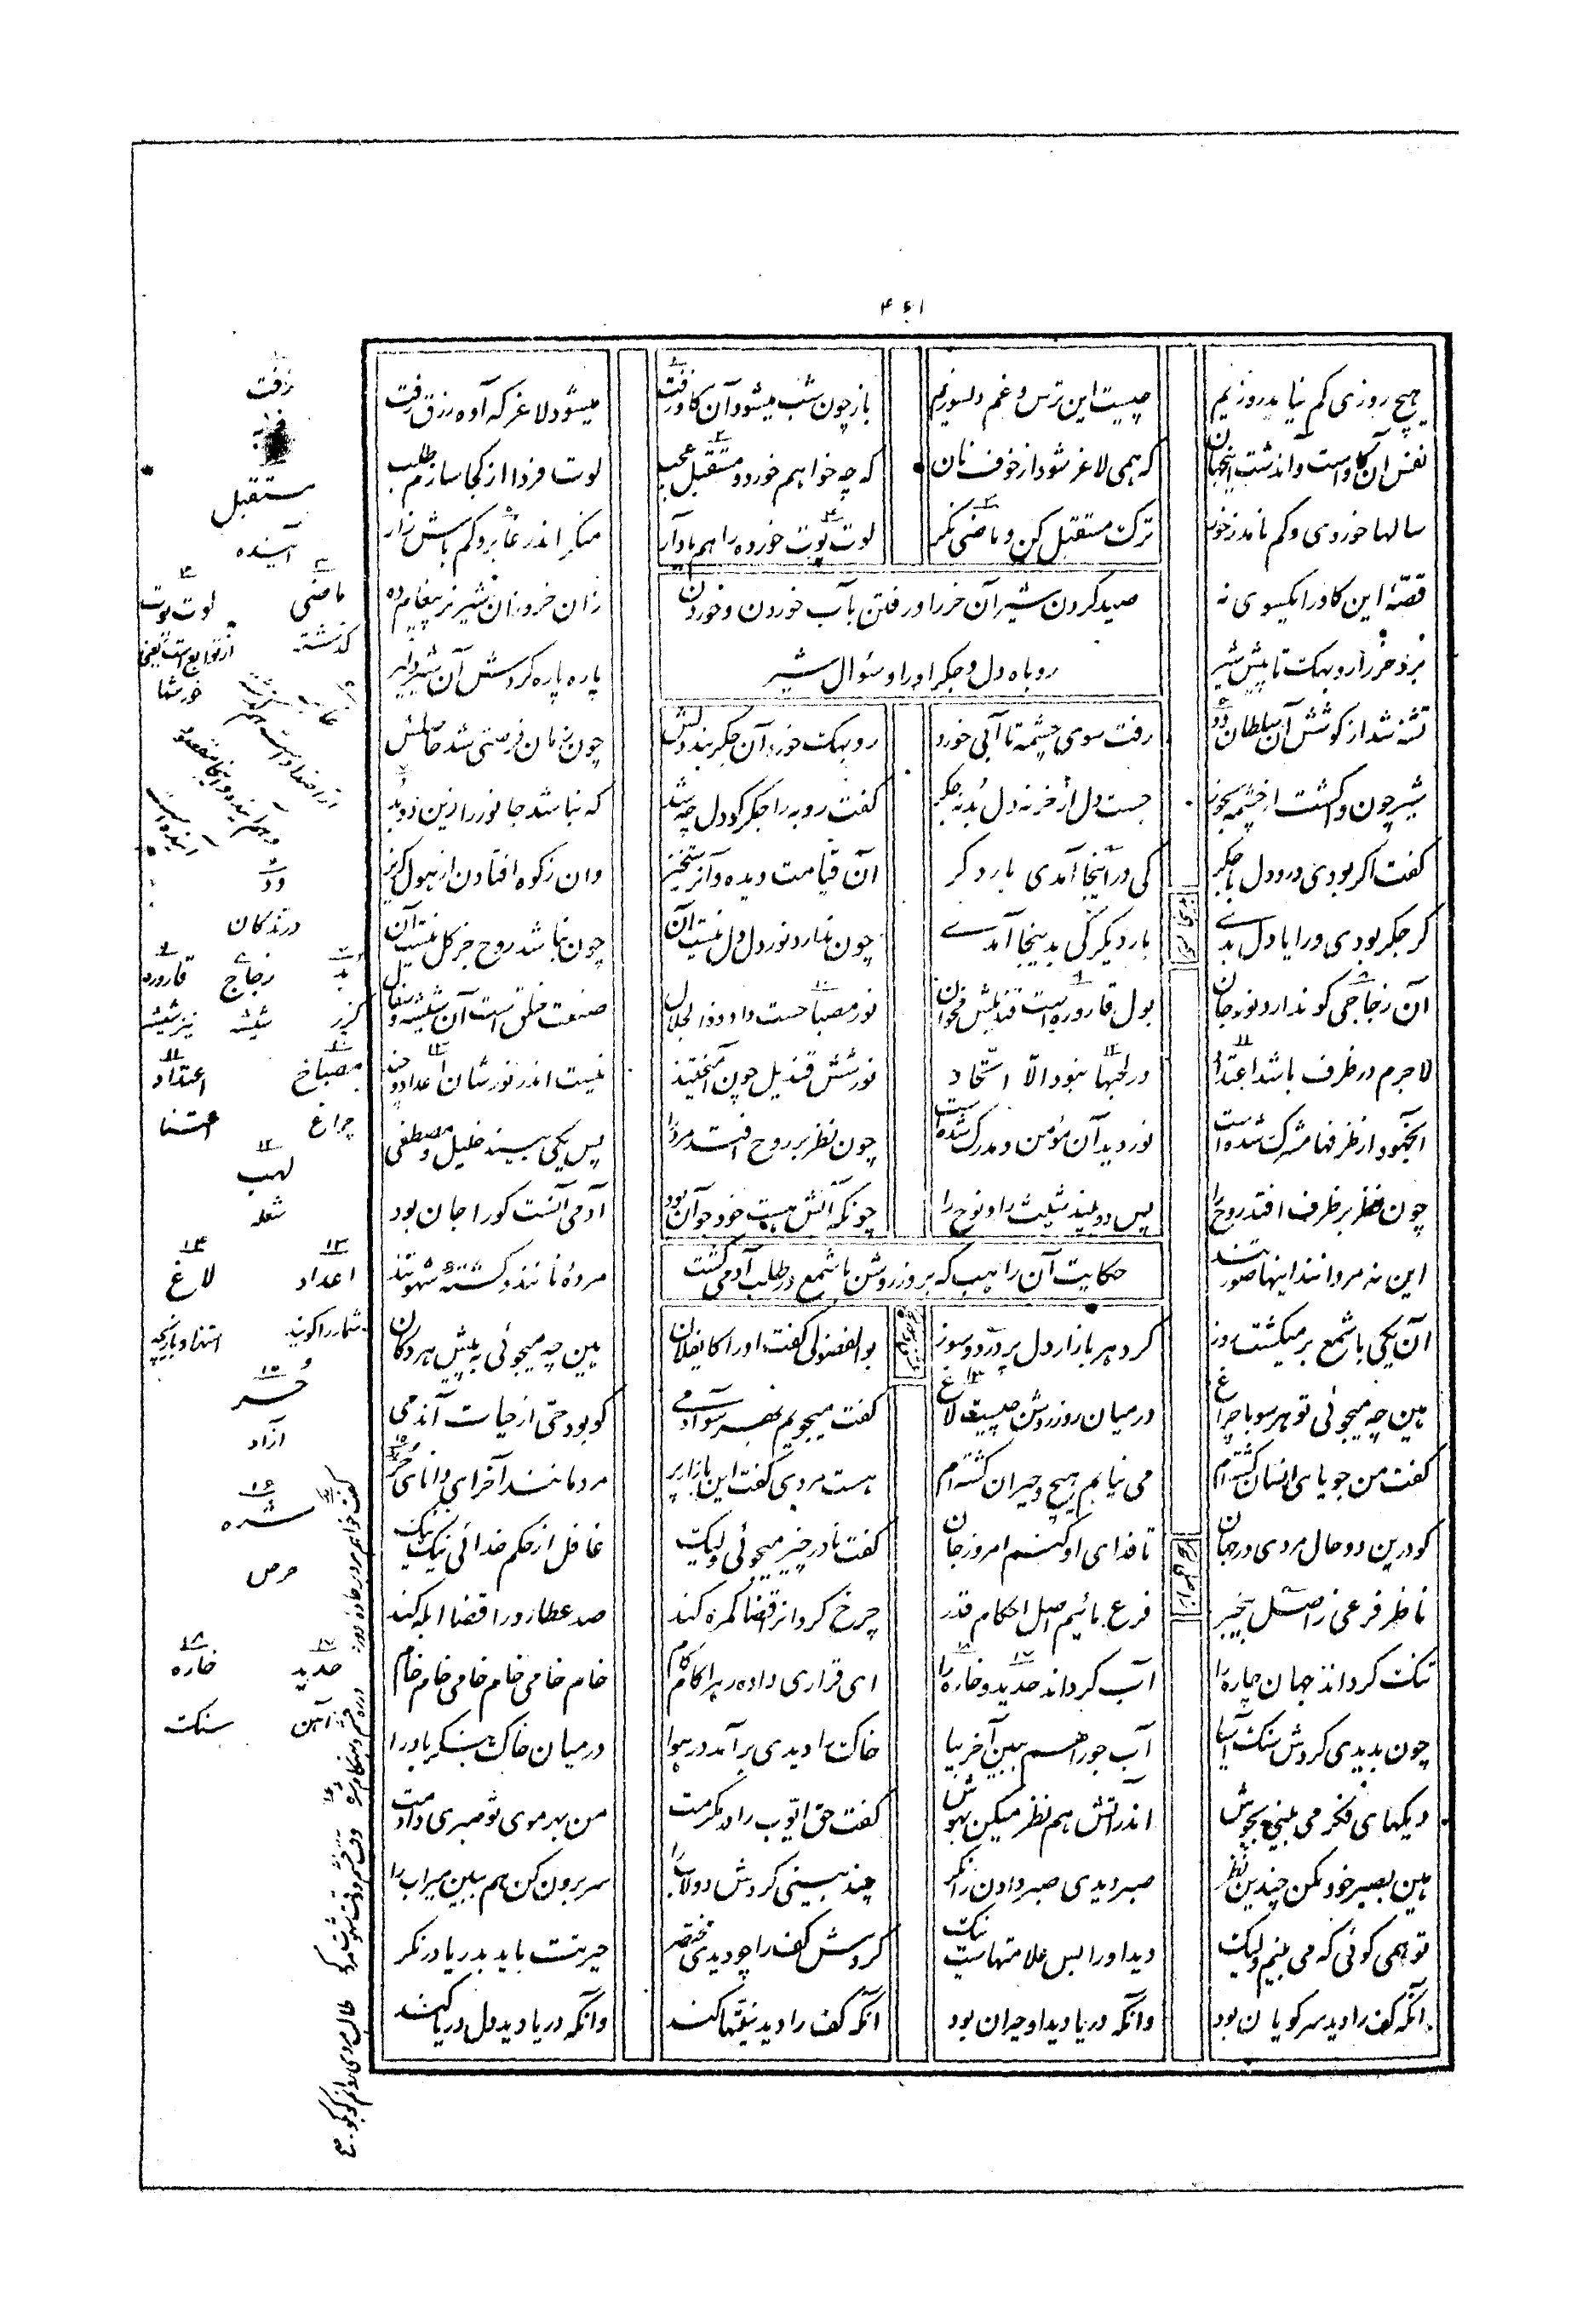 ۴۶۱
هیچ روزی کم نیاید روزیم چیست این ترس و غم دلسوزیم باز چون شب میشود آن گاو زفت میشود لاغر که آوه رزق رفت
نفس آن گاو است و آندشت اینجهان که همی لاغر شود از خوف نان که چه خواهم خورد مستقبل عجب لوت فردا از کجا سازم طلب
سالها خوردی و کم نامد ز خور ترک مستقبل کن و ماضی نگر لوت پوت خورده را هم یاد آر منگر اندر غابر و کم باش زار
قصّهٔ این گاو را یکسوی نه زان خر و زان شیر نر پیغام ده
صید کردن شیر آن خر را و رفتن بآب خوردن و خوردن
روباه دل و جگر او را و سئوال شیر
برد خر را روبهک تا پیش شیر پاره پاره کردش آن شیر دلیر
تشنه شد از کوشش آن سلطان دد رفت سوی چشمه تا آبی خورد روبهک خورد آن جگر بند و دلش چون زمان فرصتی شد حاصلش
شیر چون واگشت از چشمه بخور جست دل از خر نه دل بُد نه جگر گفت روبه را جگر کو دل چه شد که نباشد جانور را زین دو بُد
گفت اگر بودی درو دل یا جگر کی در اینجا آمدی بار دگر آن قیامت دیده و آن رستخیز وان ز کوه افتادن از هول گریز
گر جگر بودی ورا یا دل بدے بار دیگر کی بدینجا آمدے چون ندارد نور دل دل نیست آن چون نباشد روح جز گل نیست آن
آن زجاجی کو ندارد نور جان بول قاروره است قندیلش مخوان نور مصباحست داد ذوالجلال صنعت خلق است آن شیشه و سفال
لاجرم در ظرف باشد اعتداد در لهبها نبود الّا اتّحاد نور شش قندیل چون آمیختند نیست اندر نورشان اعداد و چند
آنجهود از ظرفها مشرک شده است نور دید آن مؤمن و مدرک شده است چون نظر بر روح افتد مر ورا پس یکی بیند خلیل و مصطفی
چون نظر بر ظرف افتد روح را پس دو بیند شیث را و نوح را چونکه آبش هست خود جو آن بود آدمی آنست کو را جان بود
این نه مردانند اینها صورتند مردهٔ نانند و کشتهٔ شهوتند
حکایت آن راهب که بروز روشن با شمع در طلب آدمی گشت
آن یکی با شمع بر میگشت روز گرد هر بازار دل پر درد و سوز بوالفضولی گفت او را کای فلان هین چه میجوئی به پیش هر دکان
هین چه میجوئی تو هر سو با چراغ در میان روز روشن چیست لاغ گفت میجویم بهر سو آدمی کو بود حی از حیات آندمی
گفت من جویای انسان گشته‌ام می نیابم هیچ و حیران گشته‌ام هست مردی گفت این بازار پر مردمانند آخر ای دانای حُر
کو درین دو حال مردی در جهان تا فدای او کنم امروز جان گفت نادر چیز میجوئی ولیک غافل از حکم خدائی نیک نیک
ناظر فرعی ز اصل بیخبر فرع مائیم اصل احکام قدر چرخ گردان را قضا گمره کند صد عطارد را قضا ابله کند
تنگ گرداند جهان چاره را آب گرداند حدید و خاره را ای قراری داده ره را گام گام خام خامی خام خامی خام خام
چون بدیدی گردش سنگ آسیا آب جو را هم ببین آخر بیا خاک را دیدی برآمد در هوا در میان خاک بنگر باد را
دیگهای فکر می بینی بجوش اندر آتش هم نظر میکن بهوش گفت حق ایّوب را در مکرمت من بهر موی تو صبری دادمت
هین بصبر خود مکن چندین نظر صبر دیدی صبر دادن را نگر چند بینی گردش دولاب را سر برون کن هم ببین میراب را
تو همی گوئی که می بینم ولیک دید او را بس علامتهاست نیک گردش کف را چو دیدی مختصر حیرتت باید بدریا در نگر
آنکه کف را دید سر گویان بود وانکه دریا دید او حیران بود آنکه کف را دید نیتها کند وانکه دریا دید دل دریا کند
زفت
فربه
مستقبل
آینده
ماضی
گذشته
لوت پوت
از توابع است یعنی
خورشها
دد
درندگان
بد
گزیر
زجاج
شیشه
قاروره
نیز شیشه
مصباح
چراغ
اعتداد
اعتنا
لهب
شعله
اعداد
شمار را گویند
لاغ
استهزا و بازیچه
حُر
آزاد
شره
حرص
حدید
آهن
خاره
سنگ
گفت خواهم مرد بر جاده دو ره
در ره خشم و بهنگام شره
وقت خشم و وقت شهوت مرد کو
طالب مردی دوانم کو بکو